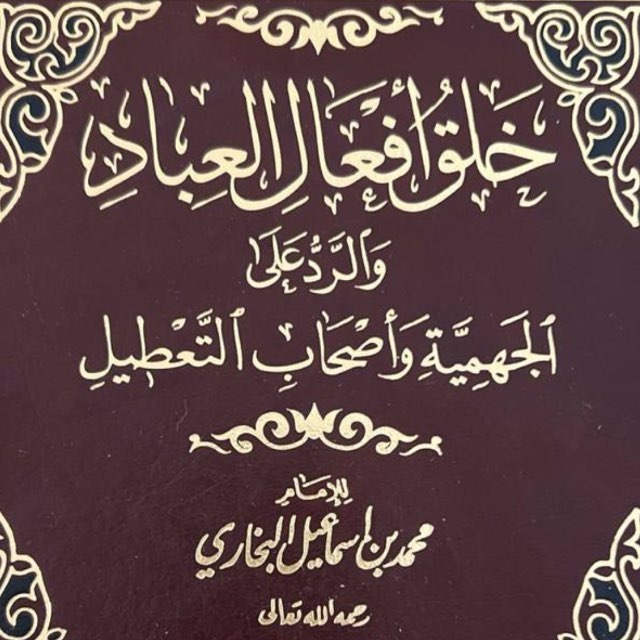 خَلْقُ أَفْعَالِ العِبَادِ
وَالرَّدُّ عَلَى
الجَهْمِيَّةِ وَأَصْحَابِ التَّعْطِيلِ
للإمام
محمد بن إسماعيل البخاري
رحمه الله تعالى